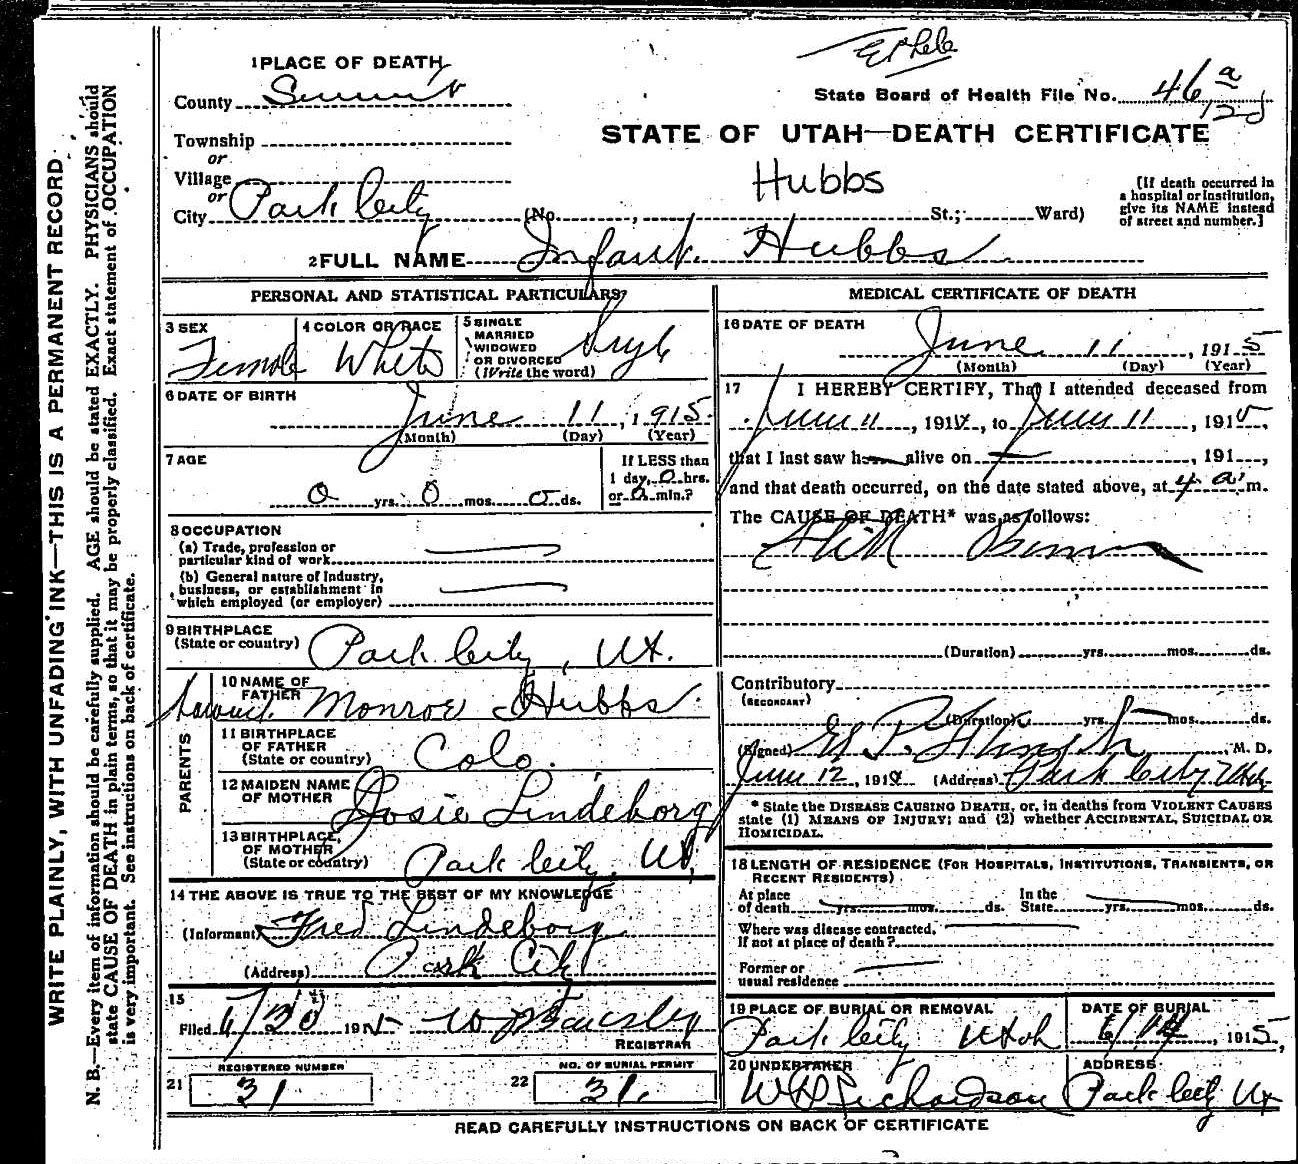 1 PLACE OF DEATH
County Summit
State Board of Health File No. 46 a
12
Township
or
Village
or
City Park City (No. , St.; Ward)
STATE OF UTAH—DEATH CERTIFICATE
Hubbs
[If death occurred in
a hospital or institution,
give its NAME instead
of street and number.]
2 FULL NAME Infant Hubbs
PERSONAL AND STATISTICAL PARTICULARS
3 SEX
Female
4 COLOR OR RACE
White
5 SINGLE
MARRIED
WIDOWED
OR DIVORCED
(Write the word)
6 DATE OF BIRTH
June 11, 1915.
(Month) (Day) (Year)
7 AGE
0 yrs. 0 mos. 0 ds.
If LESS than
1 day, 0 hrs.
or 0 min.?
8 OCCUPATION
(a) Trade, profession or
particular kind of work
(b) General nature of Industry,
business, or establishment in
which employed (or employer)
9 BIRTHPLACE
(State or country) Park City, Ut.
PARENTS
10 NAME OF
FATHER Monroe Hubbs
11 BIRTHPLACE
OF FATHER
(State or country) Colo.
12 MAIDEN NAME
OF MOTHER Josie Lindeborg
13 BIRTHPLACE
OF MOTHER
(State or country) Park City, Ut.
14 THE ABOVE IS TRUE TO THE BEST OF MY KNOWLEDGE
(Informant) Fred Lindeborg
(Address) Park City
15
Filed 191
REGISTRAR
21 REGISTERED NUMBER
31
22 NO. OF BURIAL PERMIT
31.
MEDICAL CERTIFICATE OF DEATH
16 DATE OF DEATH
June 11, 1915
(Month) (Day) (Year)
17 I HEREBY CERTIFY, That I attended deceased from
June 11, 191 , to June 11, 191 ,
that I last saw h alive on , 191 ,
and that death occurred, on the date stated above, at 4 a. m.
The CAUSE OF DEATH* was as follows:
Still Born
(Duration) yrs. mos. ds.
Contributory
(SECONDARY)
(Duration) yrs. mos. ds.
(Signed) , M. D.
June 12, 191 (Address) Park City Utah
* State the DISEASE CAUSING DEATH, or, in deaths from VIOLENT CAUSES
state (1) MEANS OF INJURY; and (2) whether ACCIDENTAL, SUICIDAL OR
HOMICIDAL.
18 LENGTH OF RESIDENCE (FOR HOSPITALS, INSTITUTIONS, TRANSIENTS, OR
RECENT RESIDENTS)
At place
of death yrs. mos. ds.
In the
State yrs. mos. ds.
Where was disease contracted,
If not at place of death?
Former or
usual residence
19 PLACE OF BURIAL OR REMOVAL
Park City Utah
DATE OF BURIAL
6/14, 1915,
20 UNDERTAKER
W D Richardson
ADDRESS
Park City Ut
READ CAREFULLY INSTRUCTIONS ON BACK OF CERTIFICATE
WRITE PLAINLY, WITH UNFADING INK—THIS IS A PERMANENT RECORD
N. B.—Every item of information should be carefully supplied. AGE should be stated EXACTLY. PHYSICIANS should
state CAUSE OF DEATH in plain terms, so that it may be properly classified. Exact statement of OCCUPATION
is very important. See instructions on back of certificate.